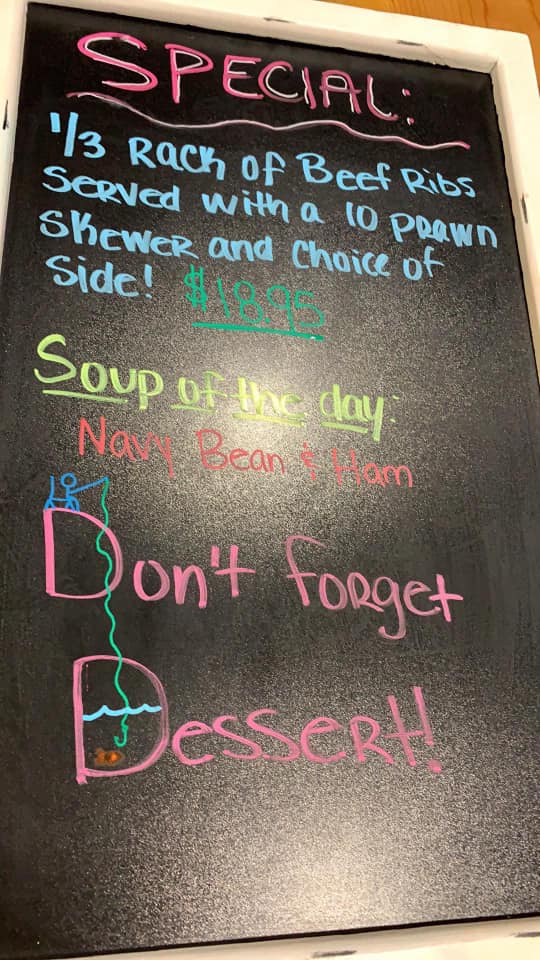 SPECIAL:
1/3 Rack of Beef Ribs
Served with a 10 prawn
Skewer and Choice of
Side! $18.95
Soup of the day:
Navy Bean & Ham
Don't forget
Dessert!